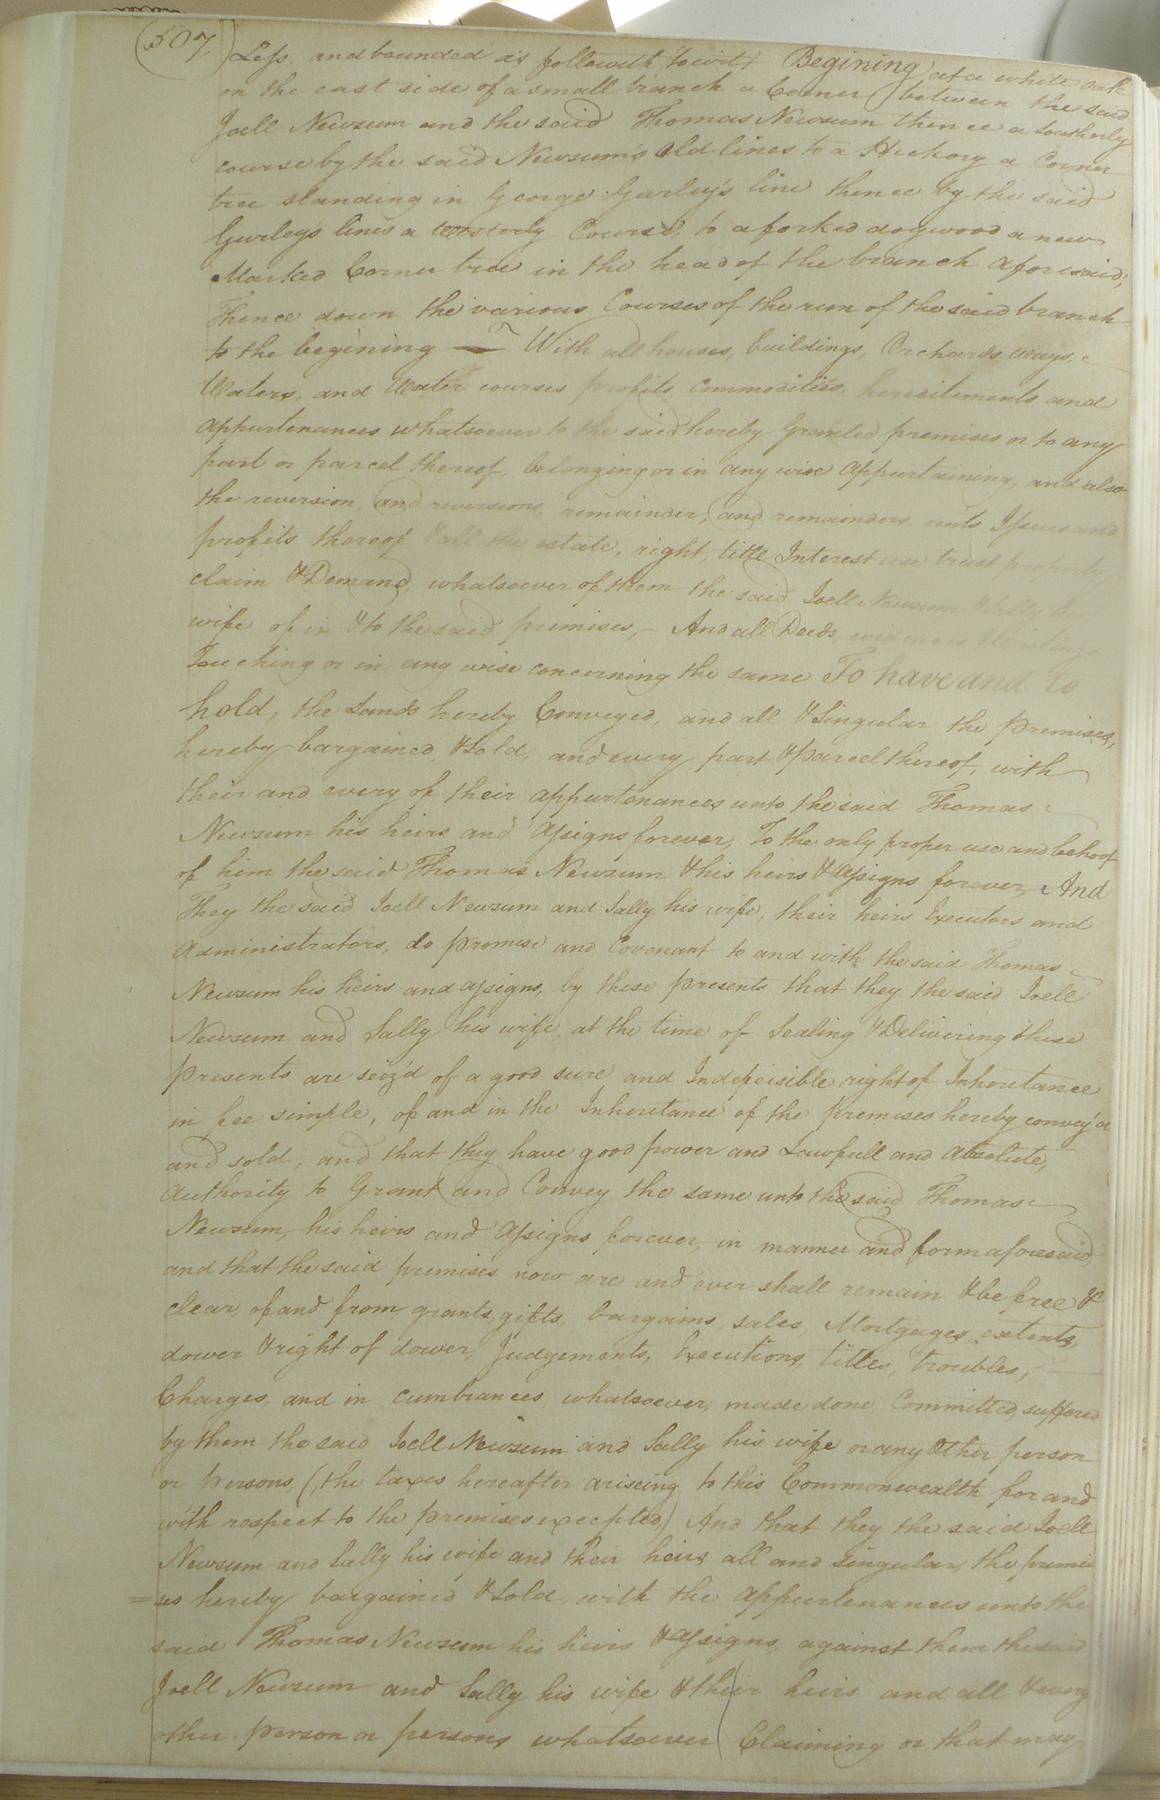 507
Less, and bounded as followeth, to wit; Begining at a white oak
on the east side of a small branch a Corner between the said
Joell Newsum and the said Thomas Newsum thence a Southerly
course by the said Newsum's old lines to a Hickory a Corner
tree standing in George Gurley's line thence by the said
Gurleys lines a Westerly Course, to a forked dogwood a new
Marked Corner tree in the head of the branch aforesaid,
Thence down the various Courses of the run of the said branch
to the begining — With all houses, buildings, Orchards ways,
Waters, and Water courses profits, commodities, hereditements and
appurtenances whatsoever to the said hereby Granted premises or to any
part or parcel thereof, belonging or in any wise appurtaining, and also
the reversion, and reversions, remainder, and remainders rents Issues and
profits thereof & all the estate, right, title Interest use trust property
claim & Demand, whatsoever of them the said Joell Newsum & Sally his
wife of in & to the said premises, — And all Deeds, evidences & Writings
Touching or in any wise concerning the same To have and To
hold, the Lands hereby Conveyed, and all & Singular the premises,
hereby bargained & Sold, and every part & parcel thereof, with
their and every of their appurtenances unto the said Thomas
Newsum his heirs and Assigns forever, To the only proper use and behoof
of him the said Thomas Newsum & his heirs & Assigns forever, And
They the said Joell Newsum and Sally his wife, their heirs Executors and
Administrators, do promise and Covenant to and with the said Thomas
Newsum his heirs and assigns, by these presents that they the said Joell
Newsum and Sally his wife, at the time of Sealing & Delivering these
presents are seiz'd of a good sure, and Indefeisible right of Inheritance
in fee simple, of and in the Inheritance of the premises hereby convey'd
and sold, and that they have good power and Lawfull and Absolute,
Authority to Grant and Convey the same unto the said Thomas
Newsum, his heirs and Assigns forever, in manner and form aforesaid,
and that the said premises now are and ever shall remain & be free &
clear, of and from grants, gifts, bargains, sales, Mortgages, extents,
dower & right of dower, Judgements, Executions, titles, troubles,
Charges, and in cumbrances, whatsoever, made done Committed, suffered
by them the said Joell Newsum and Sally his wife or any Other person
or persons, (the taxes hereafter ariseing to this Commonwealth for and
with respect to the premises excepted) And that they the said Joell
Newsum and Sally his wife and their heirs all and singular, the premi
=ses hereby bargained & Sold, with the appurtenances unto the
said Thomas Newsum his heirs & Assigns, against them the said
Joell Newsum and Sally his wife & their heirs and all & every
other person or persons whatsoever Claiming or that may